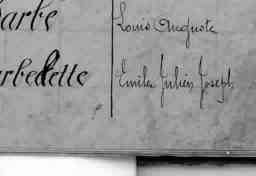 arbe Louis Auguste
arbelette Emile Julien Joseph